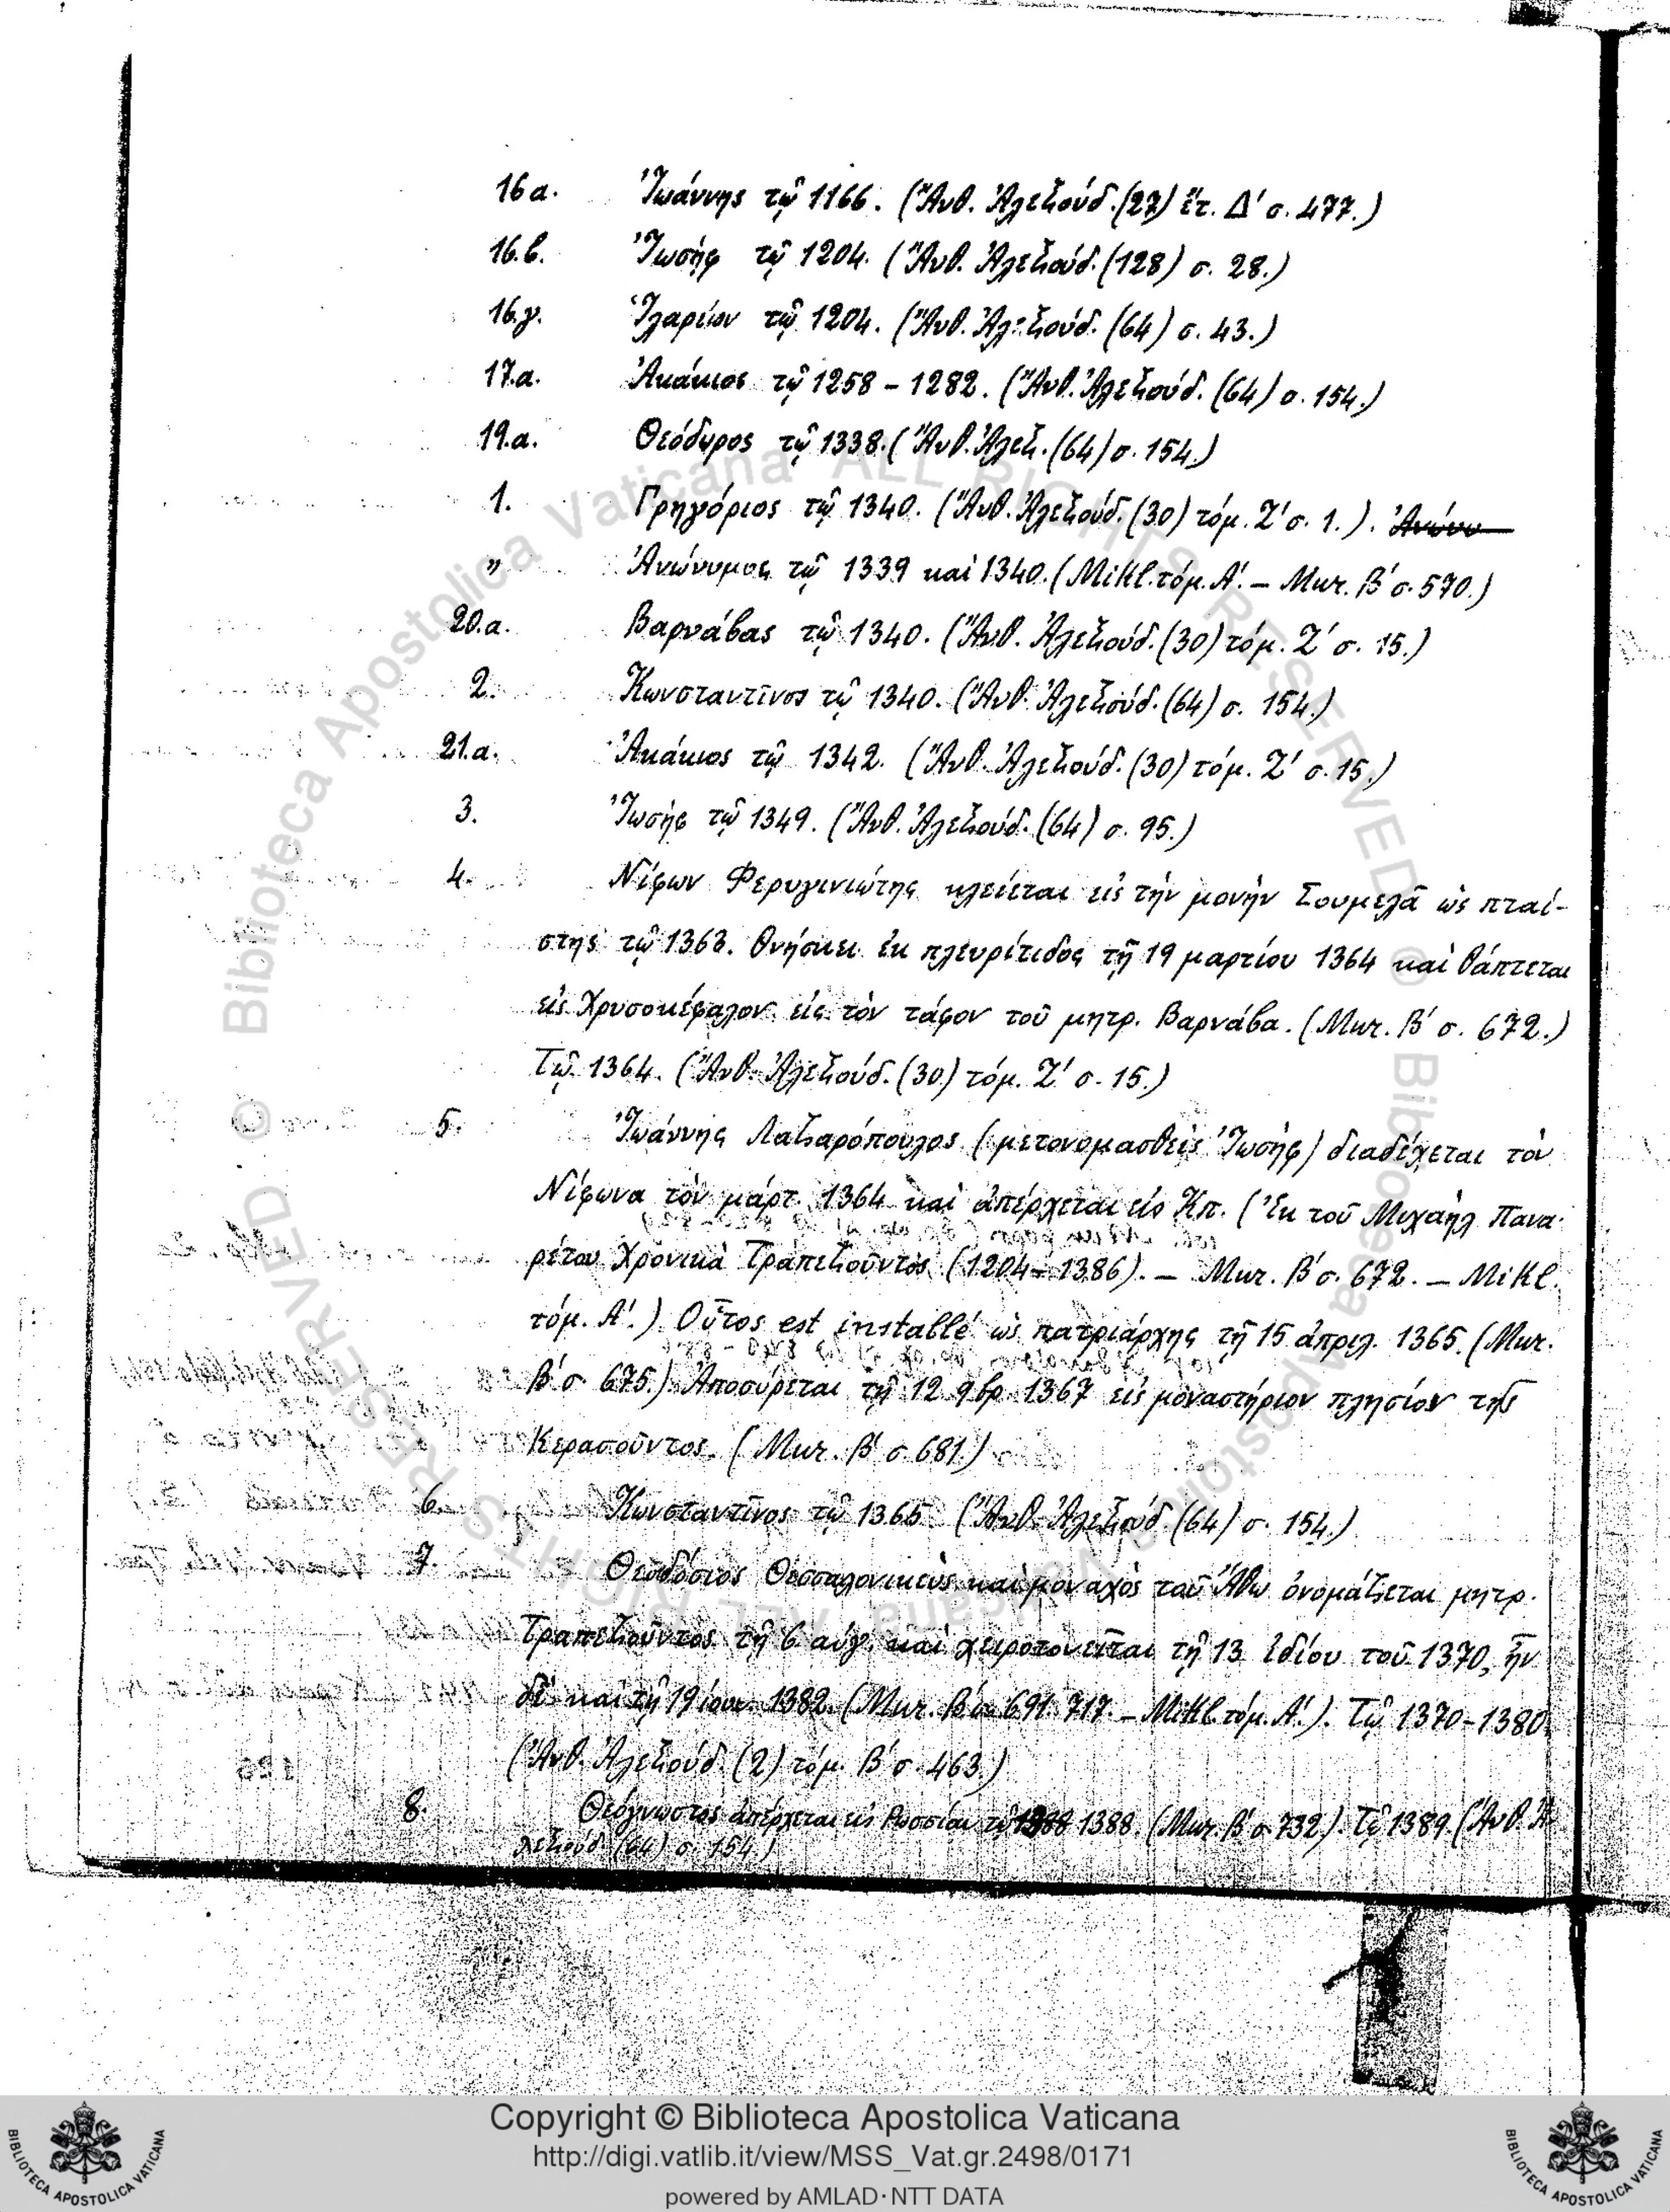 16α. Ἰωάννης τῷ 1166. (Ἄνθ. Ἀλεξούδ. (27) ἔτ. Δ' σ. 477.)
16.β. Ἰωσήφ τῷ 1204. (Ἄνθ. Ἀλεξούδ. (128) σ. 28.)
16.γ. Ἱλαρίων τῷ 1204. (Ἄνθ. Ἀλεξούδ. (64) σ. 43.)
17.α. Ἀκάκιος τῷ 1258 – 1282. (Ἄνθ. Ἀλεξούδ. (64) σ. 154.)
19.α. Θεόδωρος τῷ 1338. (Ἄνθ. Ἀλεξ. (64) σ. 154.)
1. Γρηγόριος τῷ 1340. (Ἄνθ. Ἀλεξούδ. (30) τόμ. Ζ' σ. 1.). Ἀνώνυ
" Ἀνώνυμος τῷ 1339 καὶ 1340. (Mikl. τόμ. Α'. – Μυζ. Β' σ. 570.)
20.α. Βαρνάβας τῷ 1340. (Ἄνθ. Ἀλεξούδ. (30) τόμ. Ζ' σ. 15.)
2. Κωνσταντῖνος τῷ 1340. (Ἄνθ. Ἀλεξούδ. (64) σ. 154.)
21.α. Ἀκάκιος τῷ 1342. (Ἄνθ. Ἀλεξούδ. (30) τόμ. Ζ' σ. 15.)
3. Ἰωσήφ τῷ 1349. (Ἄνθ. Ἀλεξούδ. (64) σ. 95.)
4. Νίφων Φερυγινιώτης κλείεται εἰς τὴν μονὴν Σουμελᾶ ὡς πταί-
στης τῷ 1363. Θνήσκει ἐκ πλευρίτιδος τῇ 19 μαρτίου 1364 καὶ θάπτεται
εἰς Χρυσοκέφαλον εἰς τὸν τάφον τοῦ μητρ. Βαρνάβα. (Μυζ. Β' σ. 672.)
Τῷ 1364. (Ἄνθ. Ἀλεξούδ. (30) τόμ. Ζ' σ. 15.)
5. Ἰωάννης Λαζαρόπουλος (μετονομασθεὶς Ἰωσήφ) διαδέχεται τὸν
Νίφωνα τὸν μάρτ. 1364 καὶ ἀπέρχεται εἰς Κπ. (Ἐκ τοῦ Μιχαὴλ Πανα-
ρέτου Χρονικὰ Τραπεζοῦντος (1204–1386). – Μυζ. Β' σ. 672. – Mikl.
τόμ. Α'.) Οὗτος est installé ὡς πατριάρχης τῇ 15 ἀπριλ. 1365. (Μυζ.
Β' σ. 675.) Ἀποσύρεται τῇ 12 9βρ. 1367 εἰς μοναστήριον πλησίον τῆς
Κερασοῦντος. (Μυζ. Β' σ. 681.)
6. Κωνσταντῖνος τῷ 1365. (Ἄνθ. Ἀλεξούδ. (64) σ. 154.)
7. Θεοδόσιος Θεσσαλονικεὺς καὶ μοναχὸς τοῦ Ἄθω ὀνομάζεται μητρ.
Τραπεζοῦντος τῇ 6 αὐγ. καὶ χειροτονεῖται τῇ 13 ἰδίου τοῦ 1370, ἦν
δὲ καὶ τῇ 19 ἰουν. 1382. (Μυζ. Β' σ. 691. 717. – Mikl. τόμ. Α'.). Τῷ 1370-1380.
(Ἄνθ. Ἀλεξούδ. (2) τόμ. Β' σ. 463.)
8. Θεόγνωστος ἀπέρχεται εἰς Ρωσσίαν τῷ 1388. (Μυζ. Β' σ. 732). Τῷ 1389. (Ἄνθ. Ἀ-
λεξούδ. (64) σ. 154.)
© Biblioteca Apostolica Vaticana ALL RIGHTS RESERVED © Biblioteca Apostolica Vaticana ALL RIGHTS RESERVED
Copyright © Biblioteca Apostolica Vaticana
http://digi.vatlib.it/view/MSS_Vat.gr.2498/0171
powered by AMLAD·NTT DATA
BIBLIOTECA APOSTOLICA VATICANA
BIBLIOTECA APOSTOLICA VATICANA